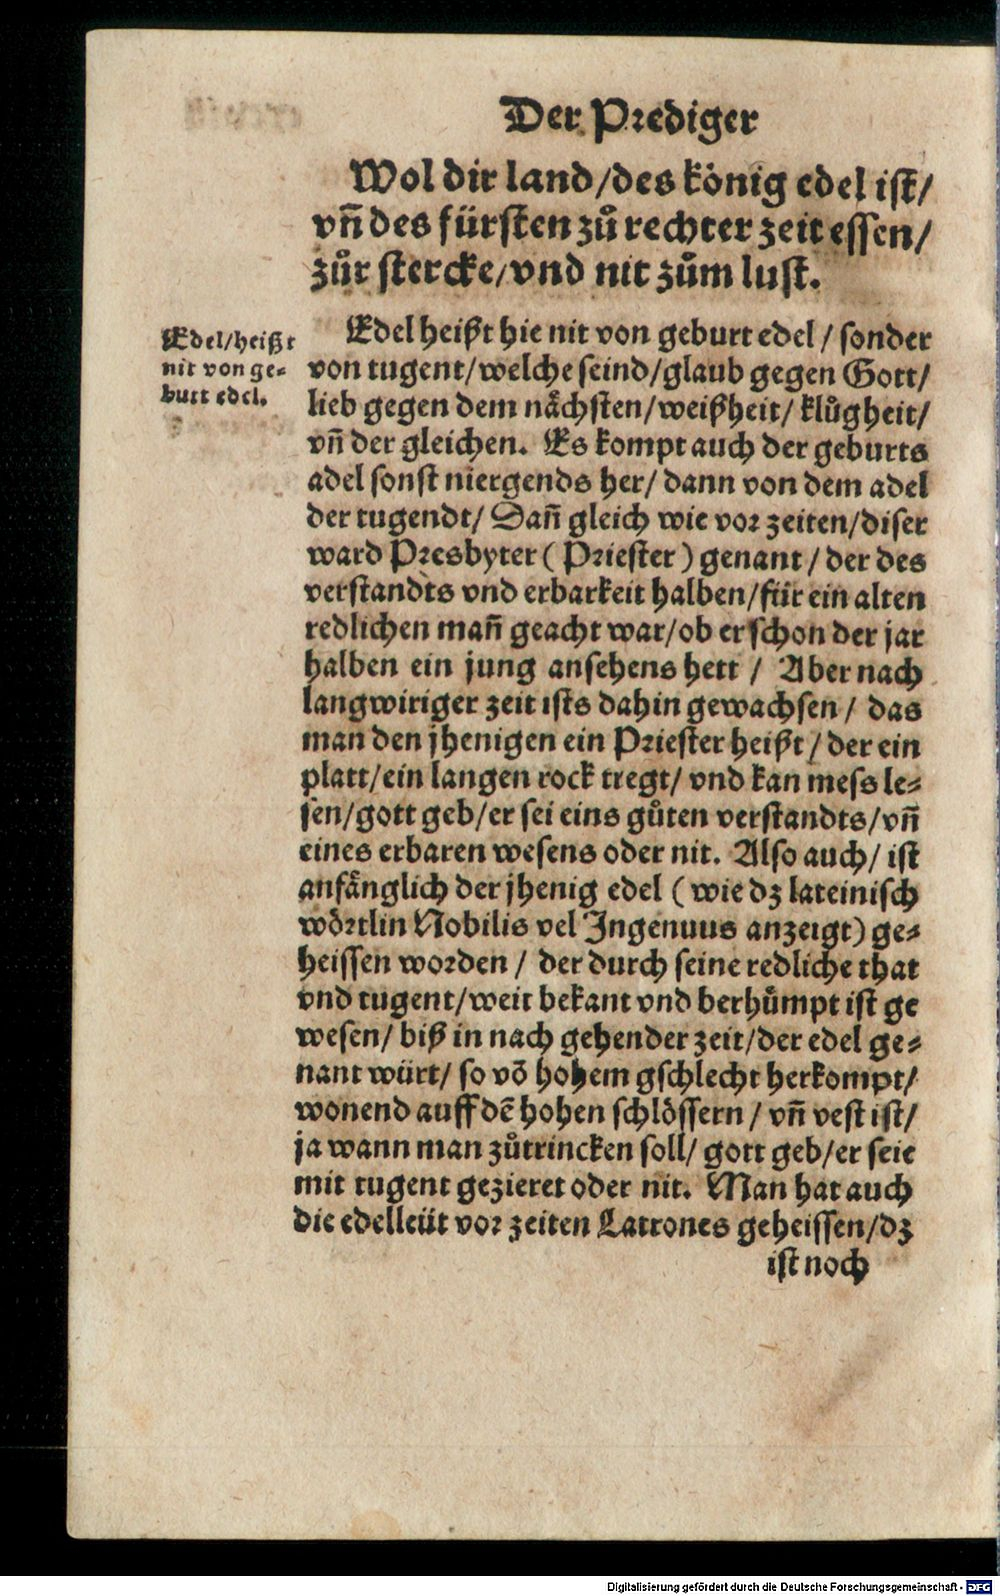 Der Prediger
Wol dir land/des König edel ist/
vñ des fürsten zů rechter zeit essen/
zůr stercke/vnd nit zům lust.
Edel/heißt
nit von ge-
burt edel.
Edel heißt hie nit von geburt edel/sonder
von tugent/welche seind/glaub gegen Gott/
lieb gegen dem nächsten/weißheit/klůgheit/
vñ der gleichen. Es kompt auch der geburts
adel sonst niergends her/dann von dem adel
der tugendt/Dañ gleich wie vor zeiten/diser
ward Presbyter (Priester) genant/der des
verstandts vnd erbarkeit halben/für ein alten
redlichen mañ geacht war/ob er schon der jar
halben ein jung ansehens hett/Aber nach
langwiriger zeit ists dahin gewachsen/das
man den jhenigen ein Priester heißt/der ein
platt/ein langen rock tregt/vnd kan mess le-
sen/gott geb/er sei eins gůten verstandts/vñ
eines erbaren wesens oder nit. Also auch/ist
anfänglich der jhenig edel (wie dz lateinisch
wörtlin Nobilis vel Ingenuus anzeigt) ge-
heissen worden/der durch seine redliche that
vnd tugent/weit bekant vnd berhůmpt ist ge
wesen/biß in nach gehender zeit/der edel ge-
nant würt/so võ hohem gschlecht herkompt/
wonend auff dẽ hohen schlössern/vñ vest ist/
ja wann man zůtrincken soll/gott geb/er seie
mit tugent gezieret oder nit. Man hat auch
die edelleüt vor zeiten Latrones geheissen/dz
ist noch
Digitalisierung gefördert durch die Deutsche Forschungsgemeinschaft - DFG